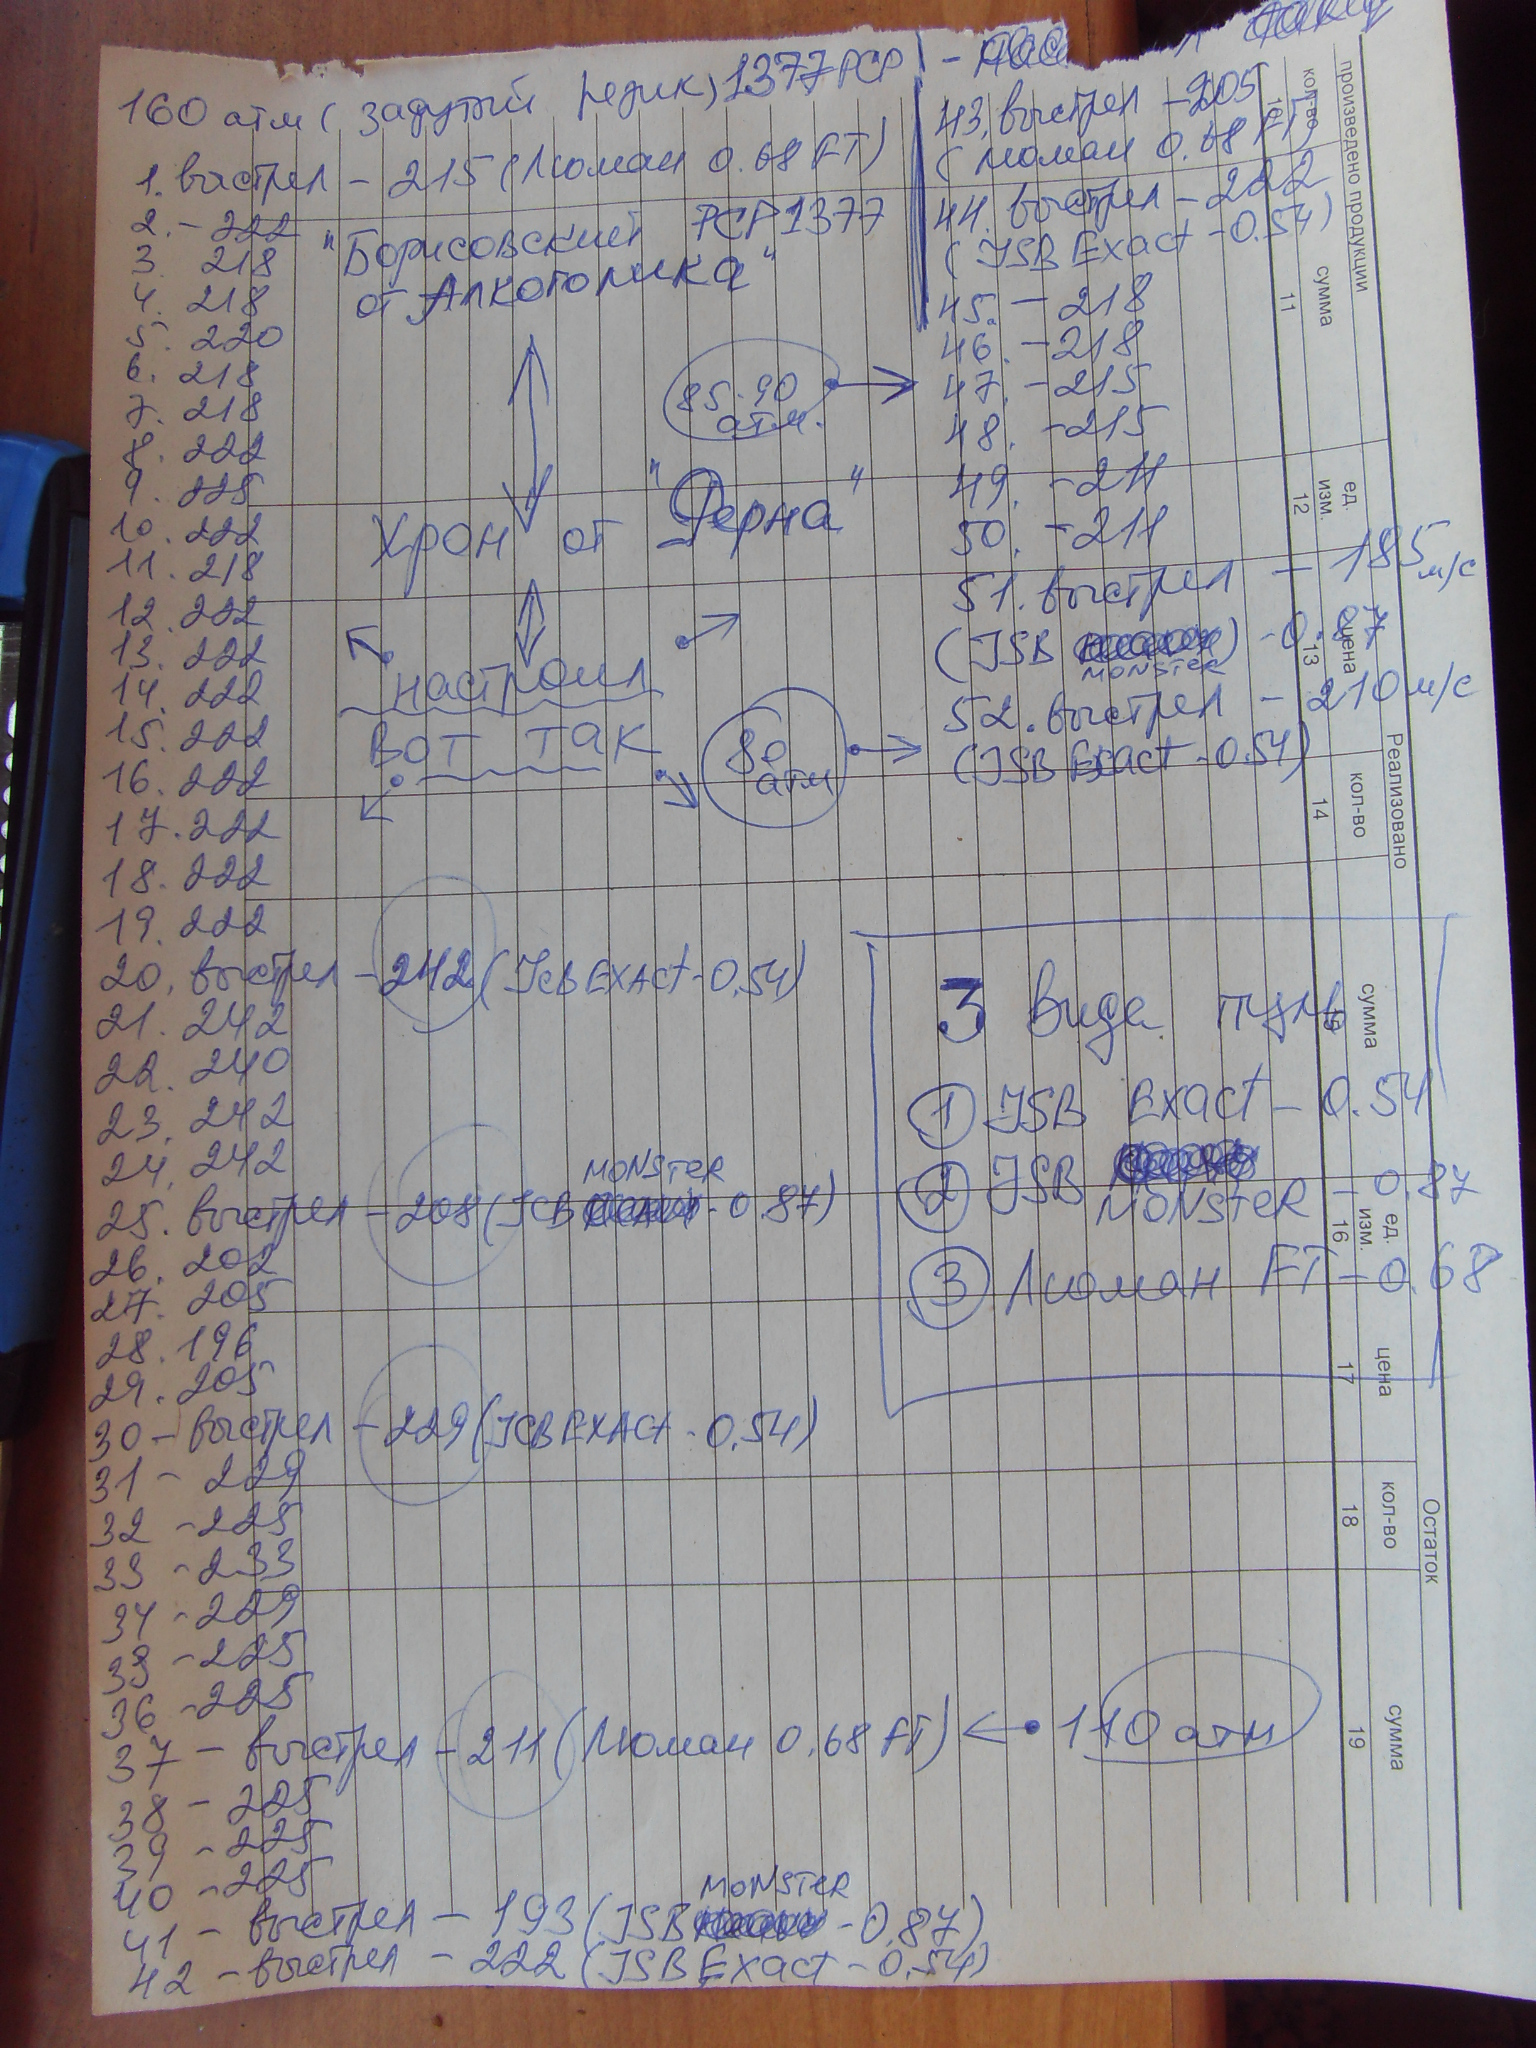 160 атм (задутый редик) 1377 PCP -
1. выстрел - 215 (Люман 0.68 FT)
2. - 222
3. 218
4. 218
5. 220
6. 218
7. 218
8. 222
9. 225
10. 222
11. 218
12. 222
13. 222
14. 222
15. 222
16. 222
17. 222
18. 222
19. 222
20. выстрел - 242 (JCB EXACt - 0.54)
21. 242
22. 240
23. 242
24. 242
MONSTER
25. выстрел - 208 (JCB - 0.87)
26. 202
27. 205
28. 196
29. 205
30 - выстрел - 229 (JCB EXACt - 0.54)
31 - 229
32 - 225
33 - 233
34 - 229
35 - 225
36 - 225
37 - выстрел - 211 (Люман 0.68 FT) ← 110 атм
38 - 225
39 - 225
40 - 225
MONSTER
41 - выстрел - 193 (JSB - 0.87)
42 - выстрел - 222 (JSB Exact - 0.54)
"Борисовский PCP 1377
от Алкоголика"
Хрон от "Ферна"
настроил
вот так
43. выстрел - 205
(Люман 0.68 FT)
44. выстрел - 222
(JSB Exact - 0.54)
45. - 218
46. - 218
85-90
атм. →
47. - 215
48. - 215
49. - 211
50. - 211
51. выстрел - 185 м/с
(JSB) - 0.87
MONSTER
52. выстрел - 210 м/с
80
атм →
(JSB Exact - 0.54)
3 вида пуль
1 JSB Exact - 0.54
2 JSB
MONSTER - 0.87
3 Люман FT - 0.68
произведено продукции
кол-во
сумма
10
11
Реализовано
ед.
изм.
цена
кол-во
сумма
12
13
14
15
Остаток
ед.
изм.
цена
кол-во
сумма
16
17
18
19